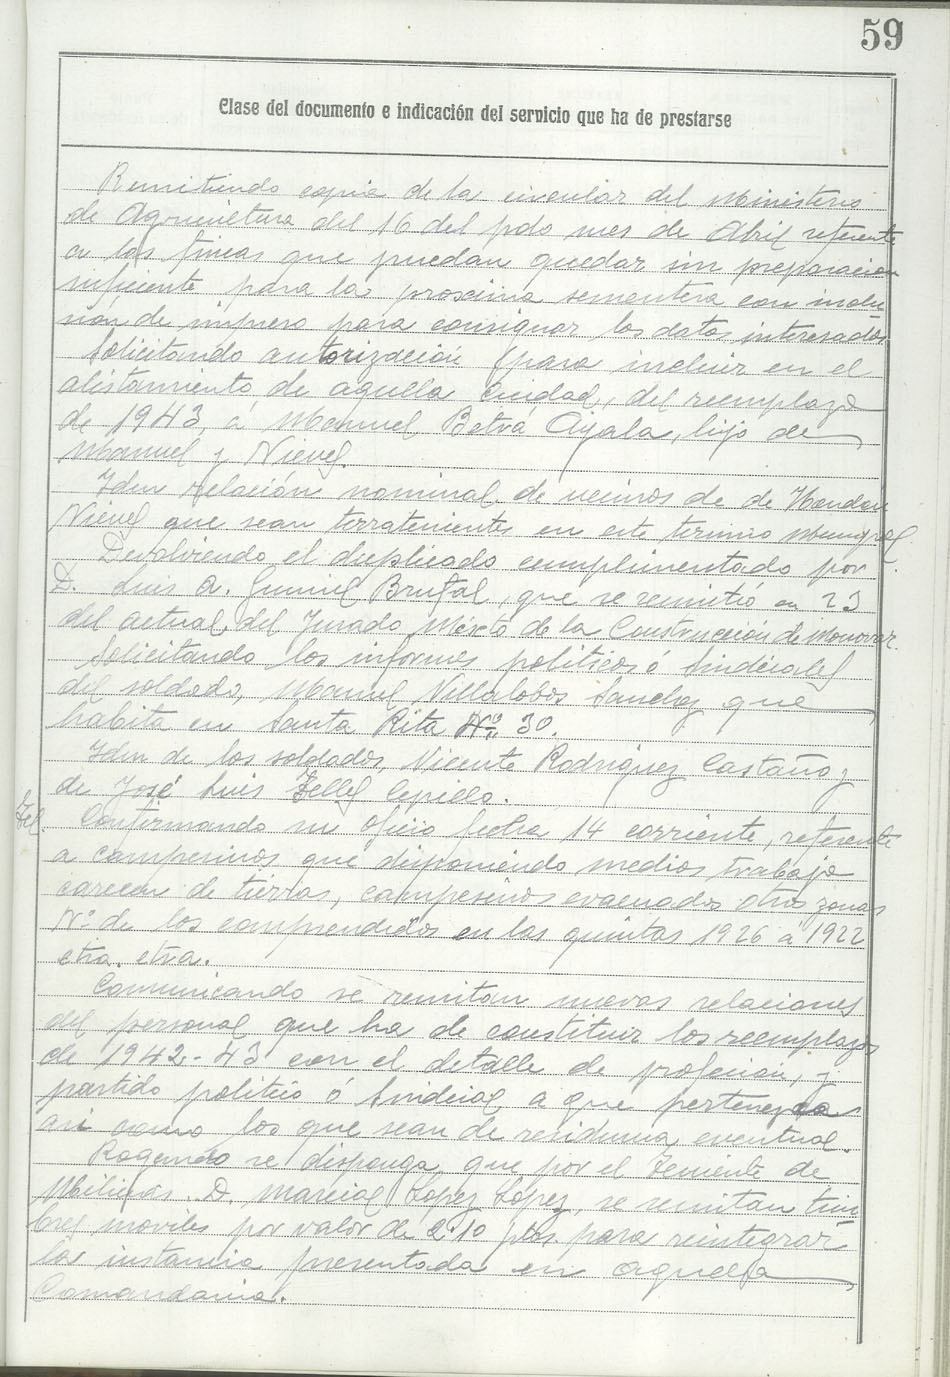 59
Clase del documento e indicación del servicio que ha de prestarse
Remitiendo copia de la circular del Ministerio
de Agricultura del 16 del pdo mes de Abril referente
a las fincas que puedan quedar sin preparación
suficiente para la proxima sementera con inclu
sión de impreso para consignar los datos interesados
Solicitando autorización para incluir en el
alistamiento de aquella Ciudad, del reemplazo
de 1943, a Manuel Betva Ayala, hijo de
Manuel y Nieves.
Iden relación nominal de vecinos de de Hondon
Nieves que sean terratenientes en este termino Municipal.
Devolviendo el duplicado cumplimentado por
D. Luis A. Gumiel Brufal, que se remitió en 23
del actual, del Jurado Mixto de la Construcción de Monovar.
Solicitando los informes politicos ó Sindicales
del soldado, Manuel Villalobos Sanchez que
habita en Santa Rita Nº 30.
Iden de los soldados, Vicente Rodriguez Castaño y
de José Luis Telles Cepillo.
Tel. Confirmando mi oficio fecha 14 corriente, referente
a campesinos que disponiendo medios trabajo
carecen de tierras, campesinos evacuados otras zonas
Nº de los comprendidos en las quintas 1926 a 1922
etra. etra.
Comunicando se remitan nuevas relaciones
del personal que ha de constituir los reemplazos
de 1942-43 con el detalle de profesion,
partido politico ó Sindical a que pertenezca
asi como los que sean de residencia eventual.
Rogando se disponga, que por el Teniente de
Milicias D. Marcial Lopez Lopez, se remitan tim
bres moviles por valor de 2'10 ptas. para reintegrar
la instancia presentada en aquella
Comandancia.